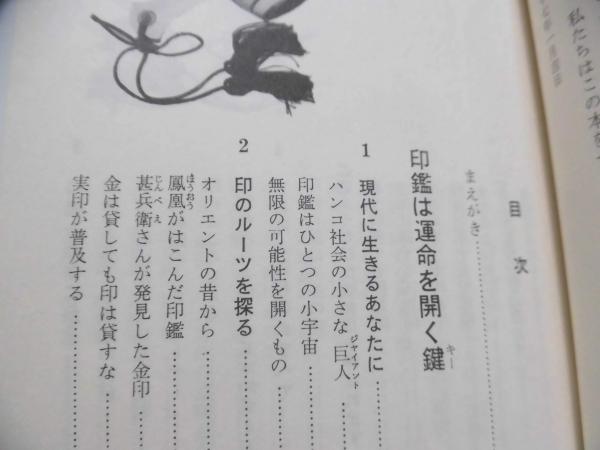 私たちはこの本を
目次
まえがき
印鑑は運命を開く鍵
キー
1 現代に生きるあなたに
ハンコ社会の小さな巨人
ジャイアント
印鑑はひとつの小宇宙
無限の可能性を開くもの
2 印のルーツを探る
オリエントの昔から
鳳凰がはこんだ印鑑
ほうおう
甚兵衛さんが発見した金印
じんべえ
金は貸しても印は貸すな
実印が普及する